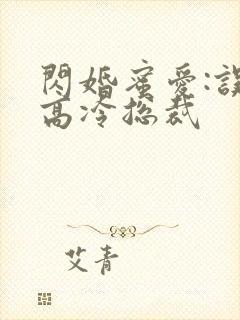 閃婚蜜愛:誤
高冷總裁
艾青